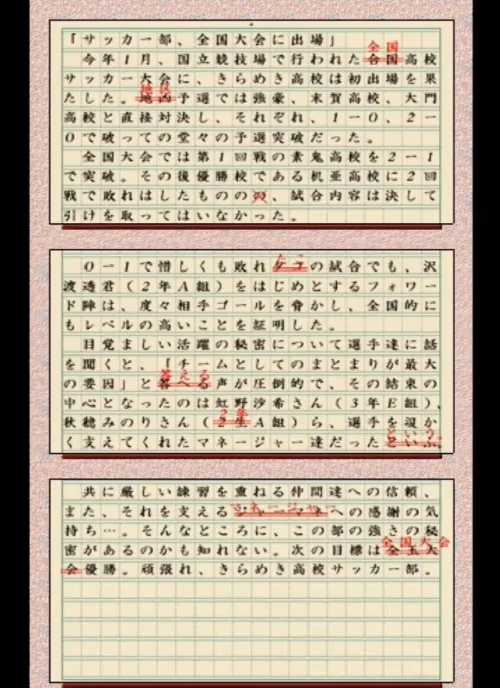 「サッカー部、全国大会に出場」
全国
今年1月、国立競技場で行われた合国高校
サッカー大会に、きらめき高校は初出場を果
地区
たした。地凶予選では強豪、末賀高校、大門
高校と直接対決し、それぞれ、1－0、2－
0で破っての堂々の予選突破だった。
全国大会では第1回戦の素鬼高校を2－1
で突破。その後優勝校である机亜高校に2回
戦で敗れはしたものの、試合内容は決して
引けを取ってはいなかった。
0－1で惜しくも敗れの試合でも、沢
渡透君（2年A組）をはじめとするフォワー
ド陣は、度々相手ゴールを脅かし、全国的に
もレベルの高いことを証明した。
目覚ましい活躍の秘密について選手達に話
を聞くと、「チームとしてのまとまりが最大
答える
の要因」と る声が圧倒的で、その結束の
中心となったのは虹野沙希さん（3年E組）、
2年
秋穂みのりさん（2生A組）ら、選手を温か
という。
く支えてくれたマネージャー達だった
共に厳しい練習を重ねる仲間達への信頼、
マネージャー
また、それを支える への感謝の気
持ち…。そんなところに、この部の強さの秘
密があるのかも知れない。次の目標は全玉大
全国大会
会優勝。頑張れ、きらめき高校サッカー部。